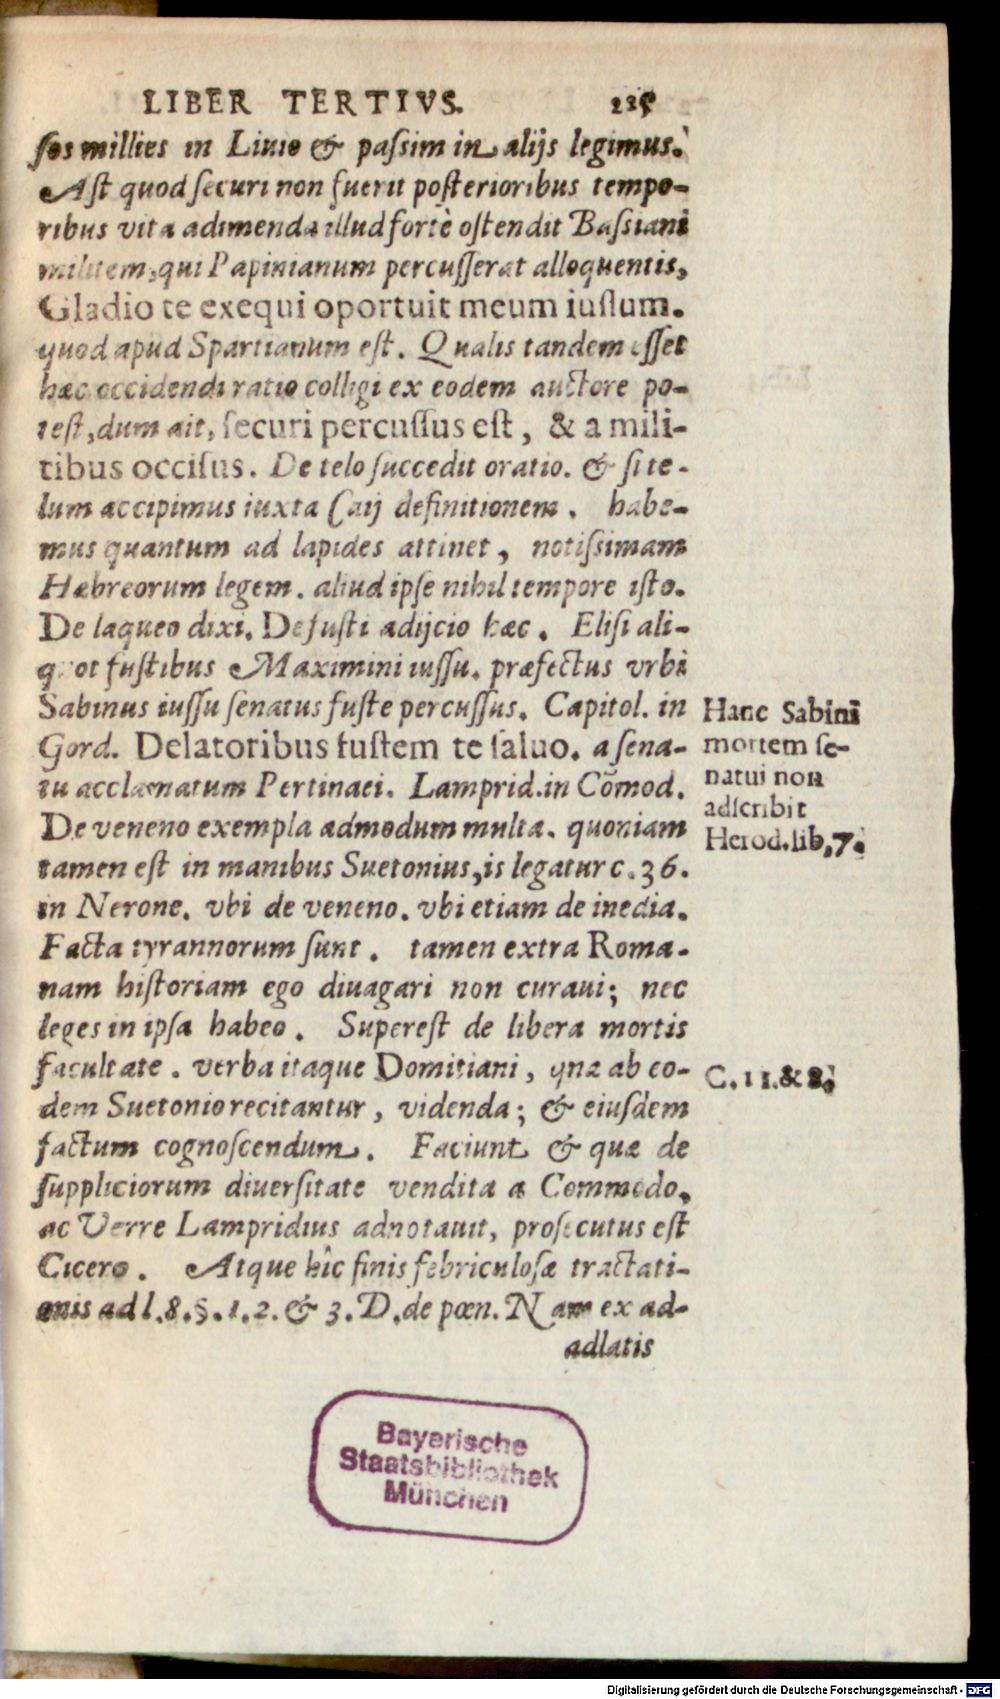 LIBER TERTIVS. 225
sos millies in Liuio & paſsim in alijs legimus.
Aſt quod ſecuri non fuerit poſterioribus tempo-
ribus vita adimenda illud fortè oſtendit Baſsiani
militem, qui Papinianum percuſſerat alloquentis,
Gladio te exequi oportuit meum iuſſum.
quod apud Spartianum eſt. Qualis tandem eſſet
hæc occidendi ratio colligi ex eodem auctore po-
teſt, dum ait, ſecuri percuſſus eſt, & a mili-
tibus occiſus. De telo ſuccedit oratio. & ſi te-
lum accipimus iuxta Caij definitionem. habe-
mus quantum ad lapides attinet, notiſsimam
Hebreorum legem. aliud ipſe nihil tempore iſto.
De laqueo dixi. De fuſti adijcio hæc. Eliſi ali-
quot fuſtibus Maximini iuſſu. præfectus vrbi
Sabinus iuſſu ſenatus fuſte percuſſus. Capitol. in
Gord. Delatoribus fuſtem te ſaluo. a ſena-
tu acclamatum Pertinaci. Lamprid. in Cōmod.
De veneno exempla admodum multa. quoniam
tamen eſt in manibus Suetonius, is legatur c. 36.
in Nerone. vbi de veneno. vbi etiam de inedia.
Facta tyrannorum ſunt. tamen extra Roma-
nam hiſtoriam ego diuagari non curaui; nec
leges in ipſa habeo. Supereſt de libera mortis
facultate. verba itaque Domitiani, quæ ab eo-
dem Suetonio recitantur, videnda; & eiuſdem
factum cognoſcendum. Faciunt & quæ de
ſuppliciorum diuerſitate vendita a Commodo,
ac Verre Lampridius adnotauit, proſecutus eſt
Cicero. Atque hîc finis febriculoſæ tractati-
onis ad l. 8. §. 1. 2. & 3. D. de pœn. Nam ex ad-
adlatis
Hanc Sabini
mortem ſe-
natui non
adſcribit
Herod. lib. 7.
C. 11. & 8.
Bayerische
Staatsbibliothek
München
Digitalisierung gefördert durch die Deutsche Forschungsgemeinschaft - DFG